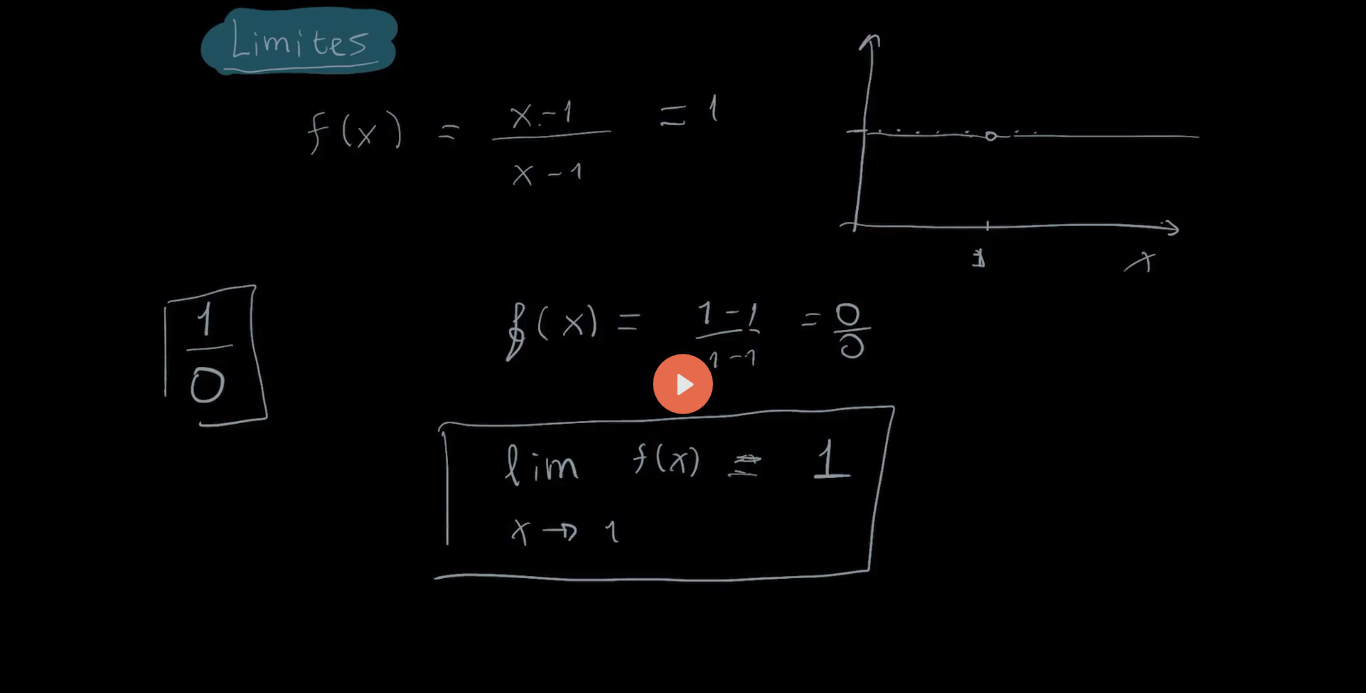 Limites
f(x) = x-1 / x-1 = 1
1
x
1/0
f(x) = 1-1 / 1-1 = 0/0
lim f(x) = 1
x → 1